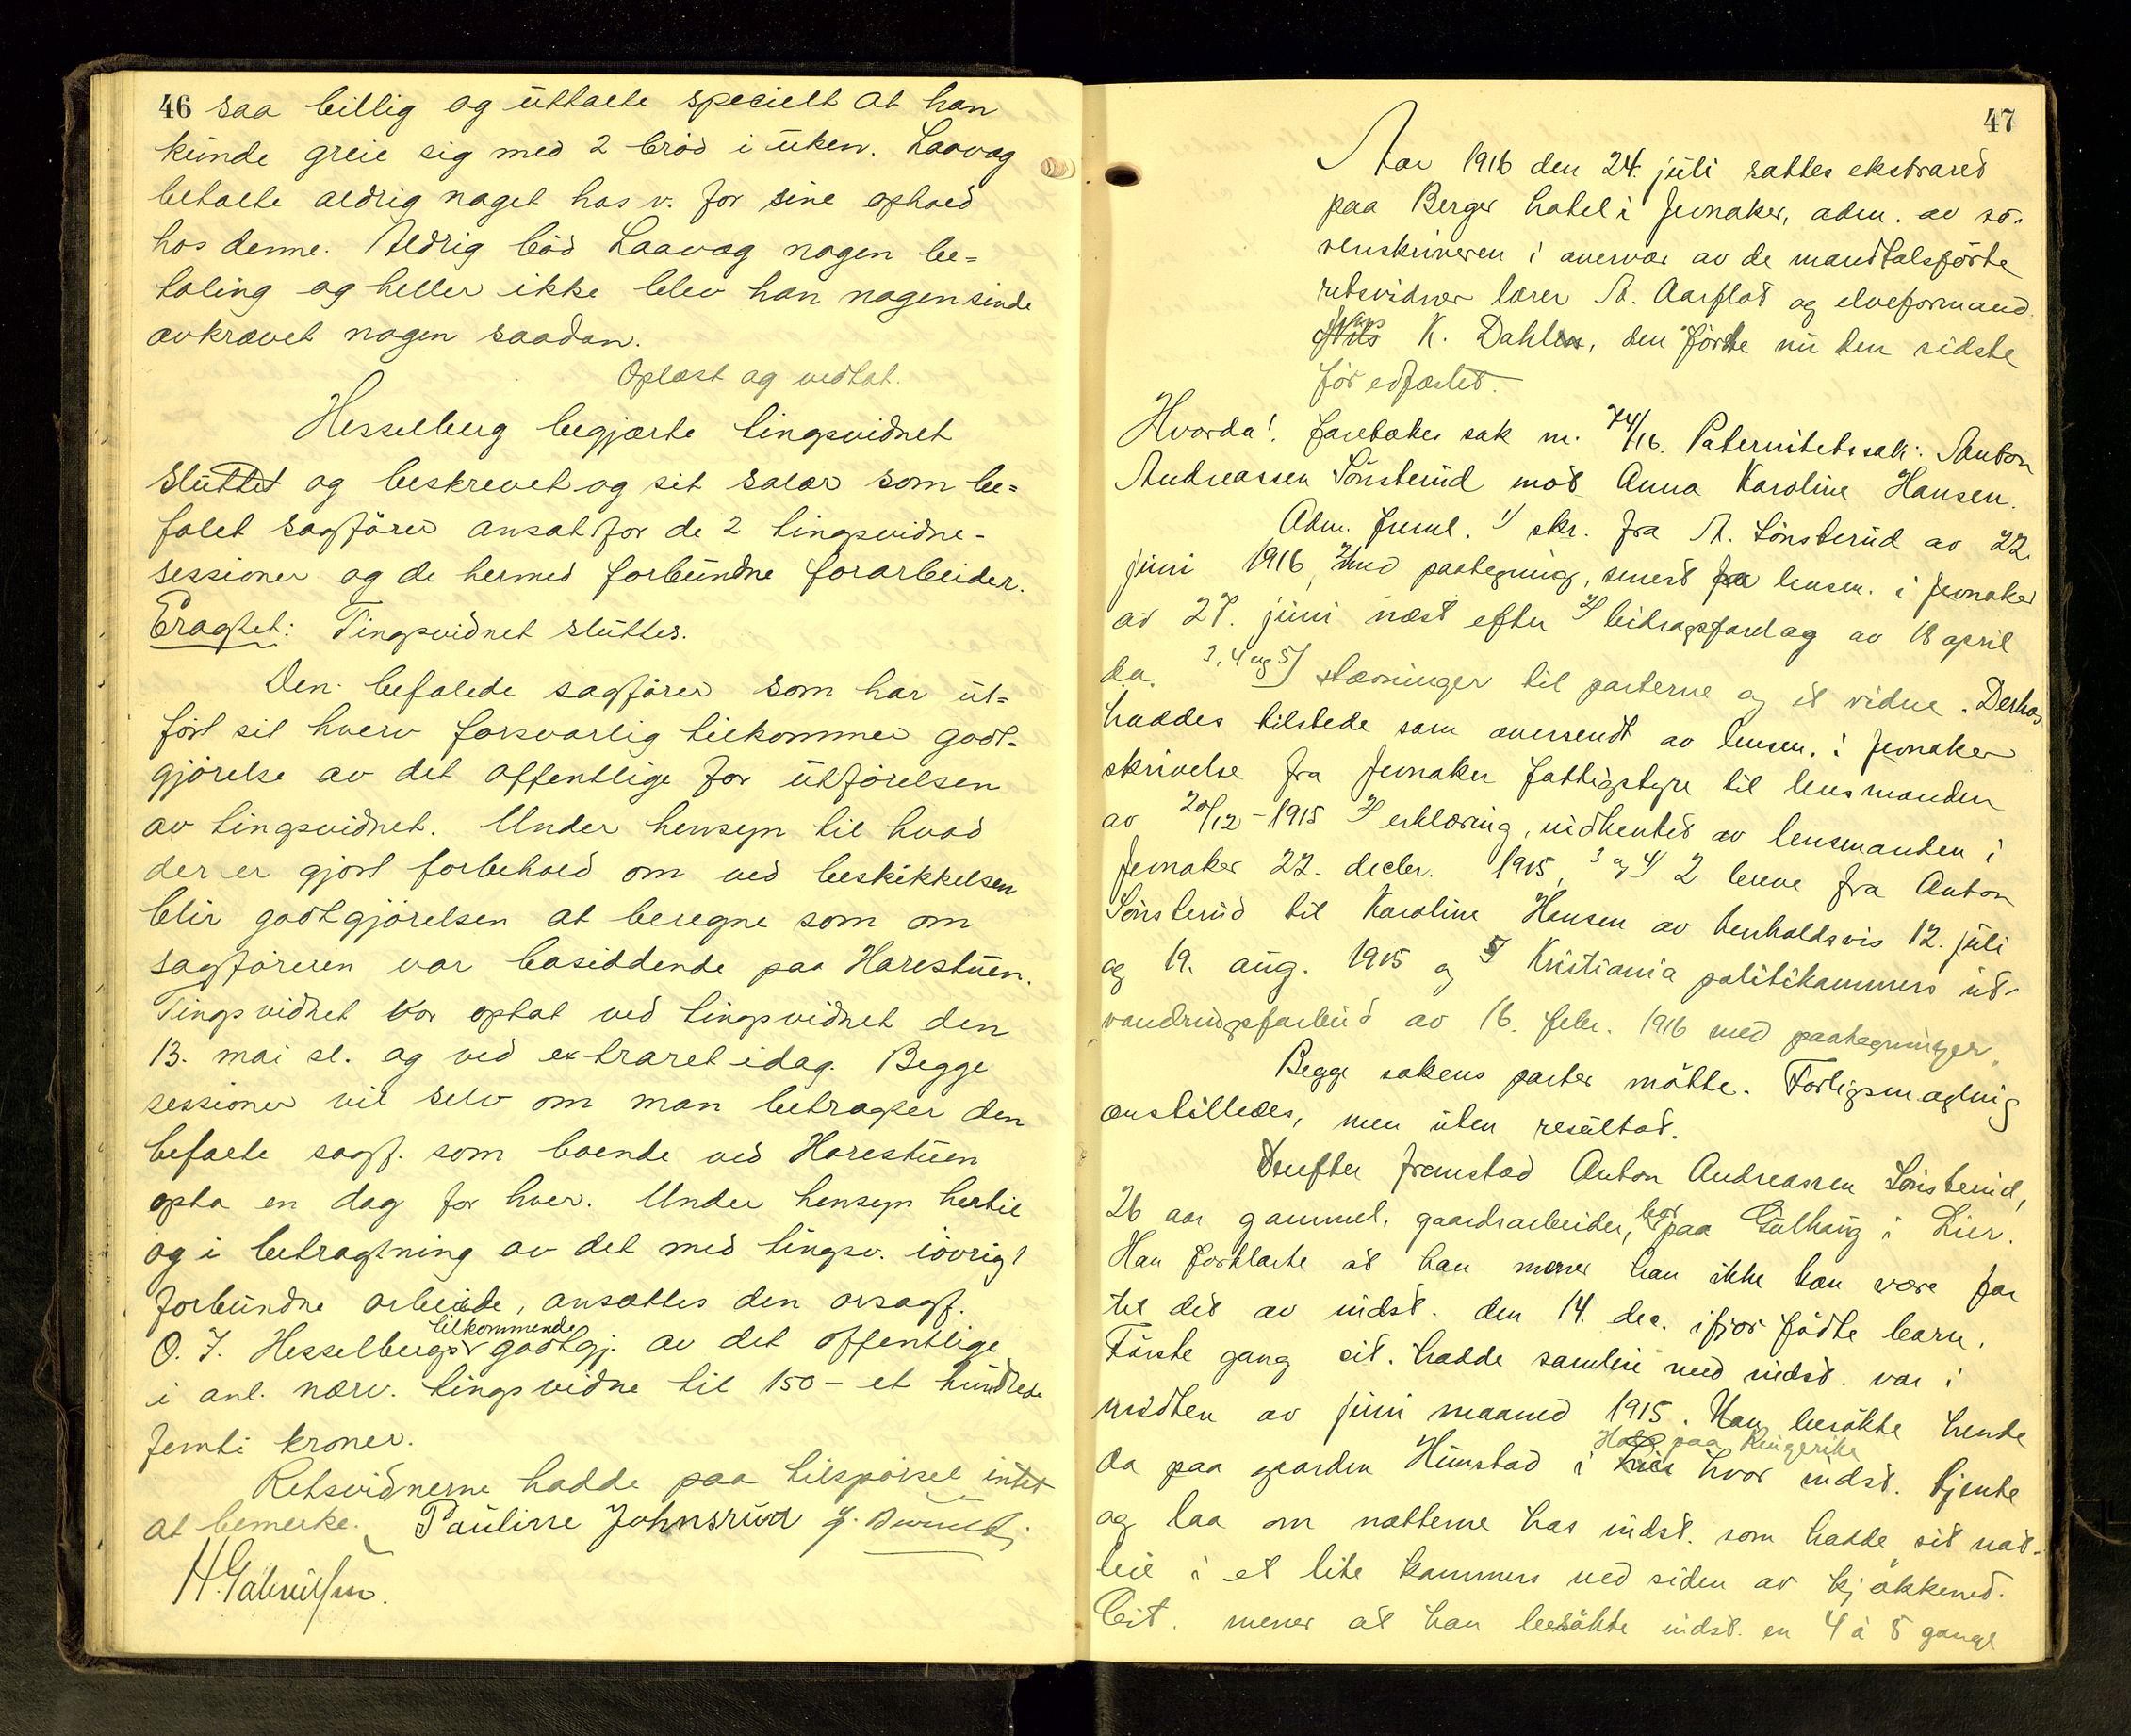 46 saa billig og uttalte specielt at han
kunde greie sig med 2 brød i uken. Laavag
betalte aldrig noget hos v. for sine ophold
hos denne. Aldrig bød Laavag nogen be=
taling og heller ikke blev han nogensinde
avkrævet nogen saadan.
Oplæst og vedtat.
Hesselberg begjærte tingsvidnet
sluttet og beskrevet og sit salær som be=
falet sagfører ansat for de 2 tingsvidne-
sessioner og de hermed forbundne forarbeider.
Eragtet: Tingsvidnet sluttes.
Den befalede sagfører som har ut=
ført sit hverv forsvarlig tilkommer godt-
gjørelse av det offentlige for utførelsen
av tingsvidnet. Under hensyn til hvad
der er gjort forbehold om ved beskikkelsen
blir godtgjørelsen at beregne som om
sagføreren var bosiddende paa Harestuen.
Tingsvidnet var optat ved tingsvidnet den
13. mai sl. og ved extraret idag. Begge
sessioner vil selv om man betragter den
befalte sagf. som boende ved Harestuen
opta en dag for hver. Under hensyn hertil
og i betragtning av det med tingsv. iøvrig
forbundne arbeide, ansættes den orsagf.
O. J. Hesselbergs tilkommende godtgj. av det offentlige
i anl. nærv. tingsvidne til 150 - et hundrede
femti kroner.
Retsvidnerne hadde paa tilspørsel intet
at bemerke. Pauline Johnsrud
H. Gabrielsen.
47
Aar 1916 den 24. juli sattes ekstraret
paa Berger hotel i Jevnaker, adm. av so-
renskriveren i overvær av de mandtalsførte
retsvidner lærer A. Aarflot og elveformand
Hans K. Dahlen, den første nu den sidste
før edfæstet.
Hvorda! Foretokes sak nr. 74/16. Paternitetssak: Anton
Andreassen Sønsterud mot Anna Karoline Hansen.
Adm. freml. 1) skr. fra A. Sønsterud av 22.
juni 1916, med paategning, senest fra lensm. i Jevnaker
av 27. juni næst efter 2) bidragsforelag av 18 april
d.a. 3, 4 og 5) stevninger til parterne og et vidne. Derhos
haddes tilstede som oversendt av lensm. i Jevnaker
skrivelse fra Jevnaker fattigstyre til lensmanden
av 20/12-1915 2) erklæring, indhentet av lensmanden i
Jevnaker 22. decbr. 1915, 3 og 4) 2 breve fra Anton
Sønsterud til Karoline Hansen av henholdsvis 12. juli
og 19. aug. 1915 og 5) Kristiania politikammers ut-
vandringsforbud av 16. febr. 1916 med paategninger.
Begge sakens parter møtte. Forligsmægling
anstilledes, men uten resultat.
Derefter fremstod Anton Andreassen Sønsterud,
26 aar gammel, gaardsarbeider, bor paa Gulhaug i Lier.
Han forklarte at han mener han ikke kan være far
til det av indst. den 14. dec. ifjor fødte barn.
Første gang cit. hadde samleie med indst. var i
midten av juni maaned 1915. Han besøkte hende
da paa gaarden Hunstad i Hole paa Ringerike hvor indst. tjente
og laa om nætterne hos indst. som hadde sit nat-
leie i et lite kammers ved siden av kjøkkenet.
Cit. mener at han besøkte indst. en 4 à 5 gange